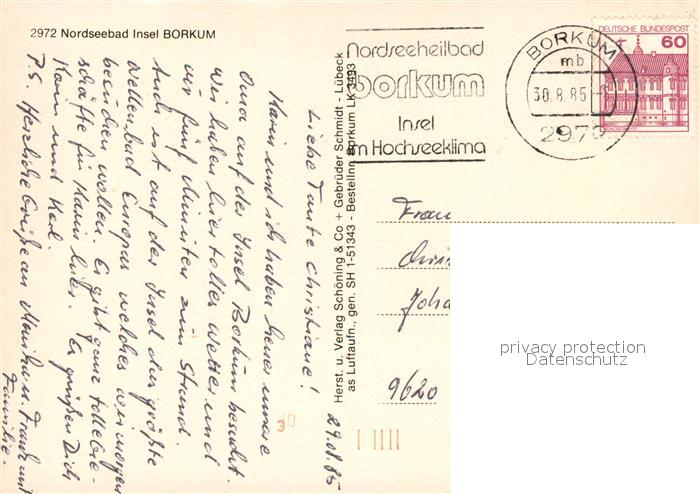 2972 Nordseebad Insel BORKUM
Nordseeheilbad
borkum
Insel
im Hochseeklima
BORKUM
mb
30.8.85
2972
DEUTSCHE BUNDESPOST
60
Herst. u. Verlag Schöning & Co + Gebrüder Schmidt - Lübeck
as Luftaufn., gen. SH 1-51343 - Bestellnr. Borkum LK 3493
29.08.85
Liebe Tante Christiane!
Karin und ich haben heuer unsere
Oma auf der Insel Borkum besucht.
Wir haben hier tolles Wetter und
nur fünf Minuten zum Strand.
Auch ist auf der Insel das größte
Wellenbad Europas welches wir morgen
besuchen wollen. Es gibt ganz tolle Ge-
schäfte für Mann hier. Es grüßen Dich
Karin und Karl.
P.S. Herzliche Grüße an Monika u. Frank und
Familie.
Frau
Joha
9620
30
privacy protection
Datenschutz